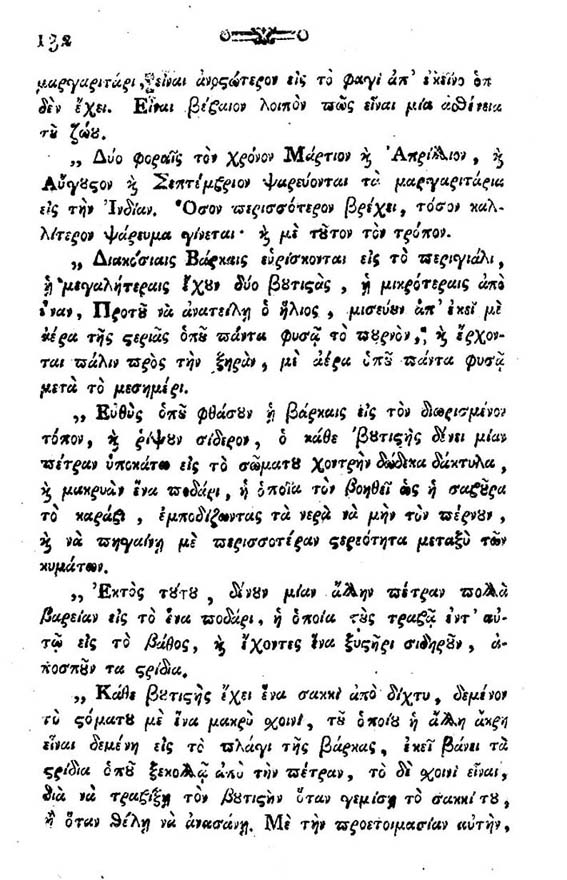 132
μαργαριτάρι, εἶναι ἀνοςώτερον εἰς τὸ φαγὶ ἀπ' ἐκεῖνο ὁπ
δὲν ἔχει. Εἶναι βέβαιον λοιπὸν πῶς εἶναι μία ἀσθένεια
τȣ̃ ζώȣ.
,, Δύο φοραῖς τὸν χρόνον Μάρτιον ϗ Ἀπρίλλιον, ϗ
Αὔγουςον ϗ Σεπτέμβριον ψαρεύονται τὰ μαργαριτάρια
εἰς τὴν Ἰνδίαν. Ὅσον περισσότερον βρέχει, τόσον καλ-
λίτερον ψάρευμα γίνεται· ϗ μὲ τȣ̃τον τὸν τρόπον.
,, Διακόσιαις Βάρκαις εὑρίσκονται εἰς τὸ περιγιάλι,
ᾑ μεγαλήτεραις ἔχȣν δύο βȣτιςὰς, ᾑ μικρότεραις ἀπὸ
ἕναν, Προτȣ̃ νὰ ἀνατείλῃ ὁ ἥλιος, μισεύȣν ἀπ' ἐκεῖ μὲ
ἀέρα τῆς ςεριᾶς ὁπȣ̃ πάντα φυσᾷ τὸ πȣρνὸν, ϗ ἔρχον-
ται πάλιν πρὸς τὴν ξηρὰν, μὲ ἀέρα ὁπȣ̃ πάντα φυσᾷ
μετὰ τὸ μεσημέρι.
,, Εὐθὺς ὁπȣ̃ φθάσȣν ᾑ βάρκαις εἰς τὸν διωρισμένον
τόπον, ϗ ῥίψȣν σίδερον, ὁ κάθε βȣτιςὴς δένει μίαν
πέτραν ὑποκάτω εἰς τὸ σῶματȣ χοντρὴν δώδεκα δάκτυλα,
ϗ μακρυὰν ἕνα ποδάρι, ἡ ὁποῖα τὸν βοηθεῖ ὡς ἡ σαβȣ́ρα
τὸ καράβι, ἐμποδίζωντας τὰ νερὰ νὰ μὴν τὸν πέρνȣν,
ϗ νὰ πηγαίνῃ μὲ περισσοτέραν ςερεότητα μεταξὺ τῶν
κυμάτων.
,, Ἐκτὸς τȣ́τȣ, δίνȣν μίαν ἄλλην πέτραν πολλὰ
βαρεῖαν εἰς τὸ ἕνα ποδάρι, ἡ ὁποία τȣ̀ς τραβᾷ ἐντ' αὐ-
τῷ εἰς τὸ βάθος, ϗ ἔχοντες ἕνα ξυςῆρι σιδηρȣ̃ν, ἀ-
ποσπȣ̃ν τα ςρίδια.
,, Κάθε βȣτιςὴς ἔχει ἕνα σακκὶ ἀπὸ δίχτυ, δεμένον
τȣ̃ ςόματȣ μὲ ἕνα μακρὺ χοινὶ, τȣ̃ ὁποίȣ ἡ ἄλλη ἄκρη
εἶναι δεμένη εἰς τὸ πλάγι τῆς βάρκας, ἐκεῖ βάνει τὰ
ςρίδια ὁπȣ̃ ξεκολλᾷ ἀπὸ τὴν πέτραν, τὸ δὲ χοινὶ εἶναι,
διὰ νὰ τραβίξῃ τὸν βȣτιςὴν ὅταν γεμίσῃ τὸ σακκί τȣ,
ἢ ὅταν θέλῃ νὰ ἀνασάνῃ. Μὲ τὴν προετοιμασίαν αὐτὴν,